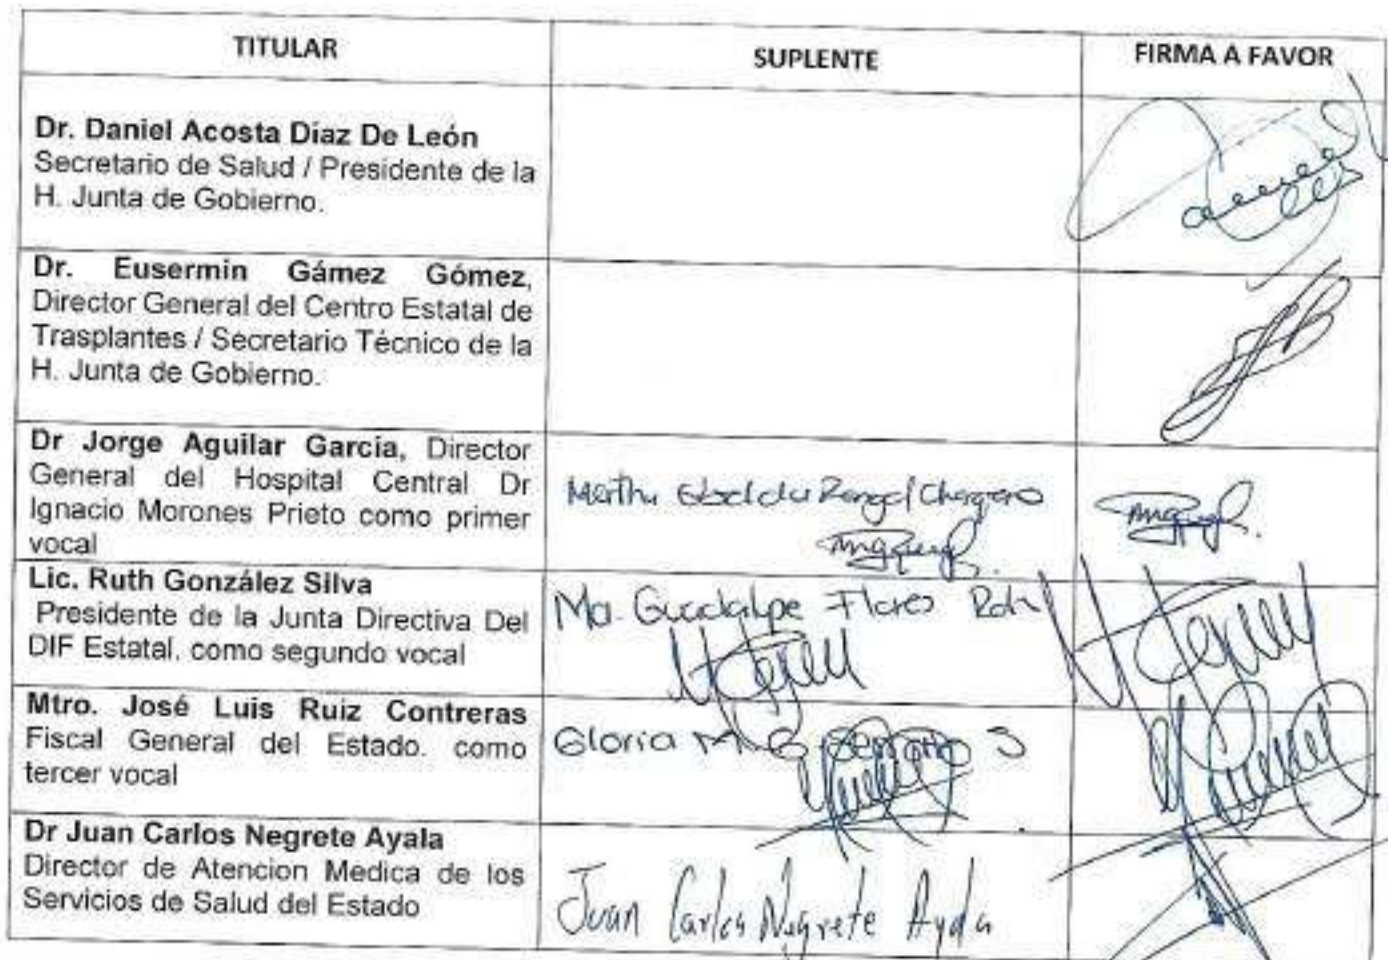 TITULAR
SUPLENTE
FIRMA A FAVOR
Dr. Daniel Acosta Díaz De León
Secretario de Salud / Presidente de la
H. Junta de Gobierno.
Dr. Eusermin Gámez Gómez,
Director General del Centro Estatal de
Trasplantes / Secretario Técnico de la
H. Junta de Gobierno.
Dr Jorge Aguilar García, Director
General del Hospital Central Dr
Ignacio Morones Prieto como primer
vocal
Martha
Lic. Ruth González Silva
Presidente de la Junta Directiva Del
DIF Estatal. como segundo vocal
Ma. Guadalupe Flores
Mtro. José Luis Ruiz Contreras
Fiscal General del Estado. como
tercer vocal
Gloria M
Dr Juan Carlos Negrete Ayala
Director de Atencion Medica de los
Servicios de Salud del Estado
Juan Carlos Negrete Ayala